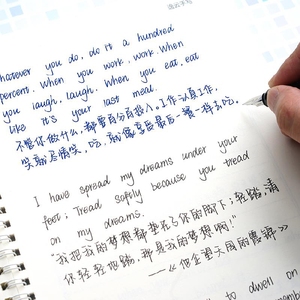 hatever you do, do it a hundred
percent. When you work, work. When
you laugh, laugh. When you eat, eat
like it's your last meal.
不管你做什么,都要百分百投入,工作认真工作,
笑就尽情笑,吃,就像享受最后一餐一样去吃。
I have spread my dreams under your
feet; Tread softly because you tread
on my dreams.
"我把我的梦想都垫在了你的脚下;轻踏,请
你轻轻地踏,那是我的梦想啊!"
——《他企望天国的
to dwell on
remember